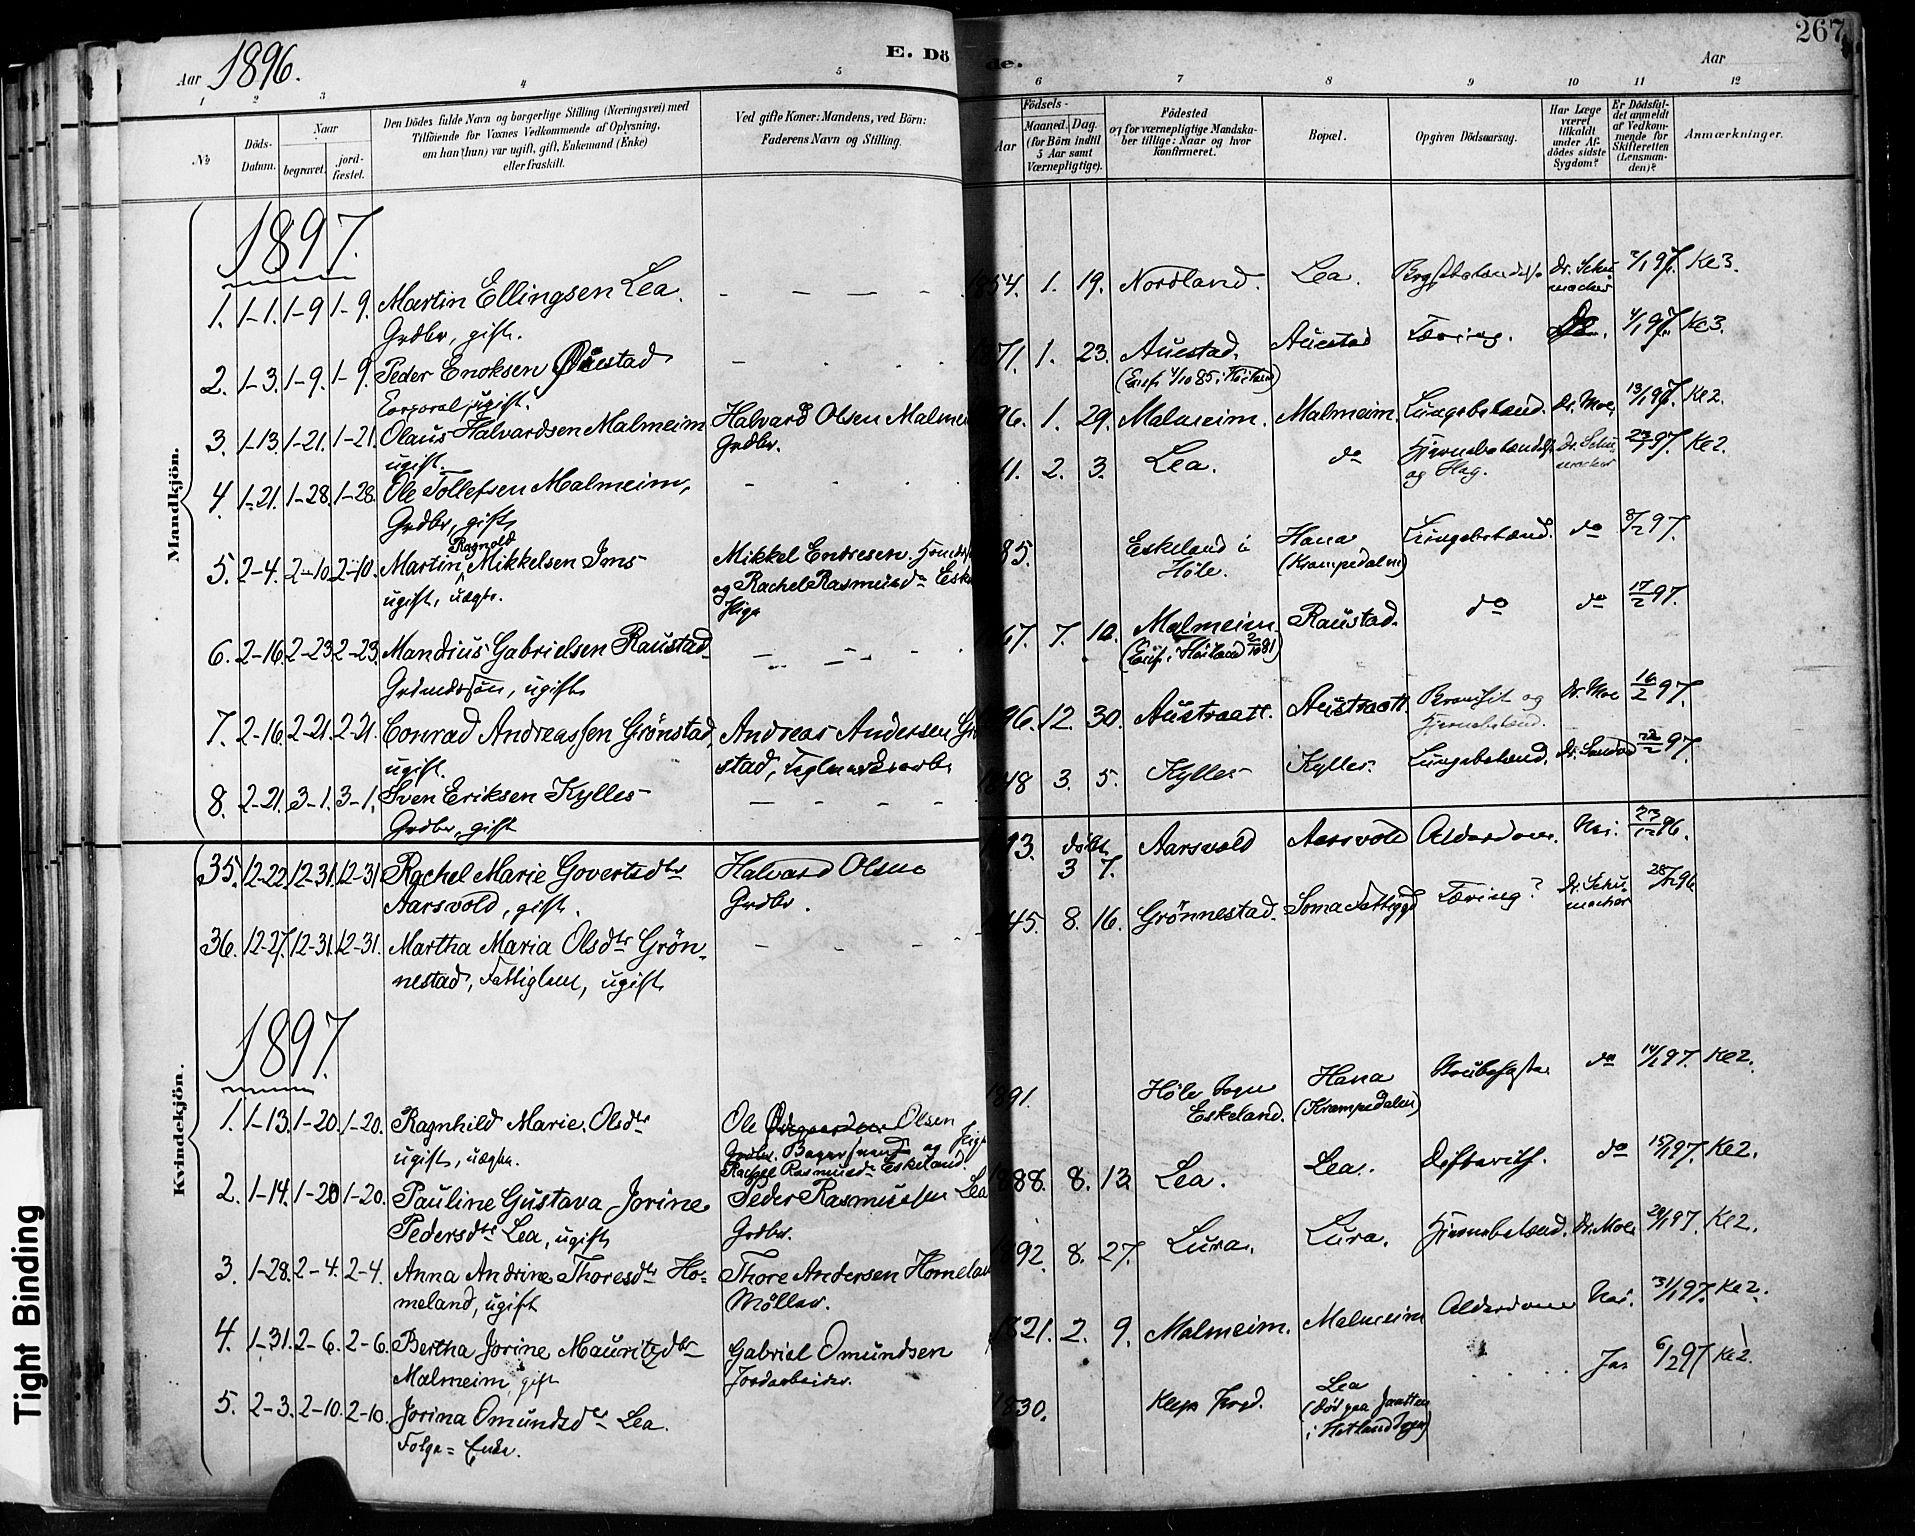 267
Aar 1896.
E. Dö de.
Aar
1 2 3 4 5 6 7 8 9 10 11 12
No
Döds-
Datum.
Naar
begravet.
jord-
fæstet.
Den Dödes fulde Navn og borgerlige Stilling (Næringsvei) med
Tilföiende for Voxnes Vedkommende af Oplysning,
om han (hun) var ugift, gift, Enkemand (Enke)
eller fraskilt.
Ved gifte Koner: Mandens, ved Börn:
Faderens Navn og Stilling.
Födsels-
Aar
Maaned. Dag.
(for Börn indtil
3 Aar samt
Værnepligtige).
Födested
og for værnepligtige Mandska-
ber tillige: Naar og hvor
konfirmeret.
Bopæl.
Opgiven Dödsaarsag.
Har Læge
været
tilkaldt
under Af-
dödes sidste
Sygdom?
Er Dödsfal-
det anmeldt
af Vedkom-
mende for
Skifteretten
(Lensman-
den)?
Anmærkninger.
Mandkjön.
1897.
1. 1-1. 1-9 1-9. Martin Ellingsen Lea. 1854. 1. 19. Nordland. Lea. Dr. Schu- 2/1 97. Ke 3.
macher
Grdbr, gift.
2. 1-3. 1-9. 1-9. Peder Enoksen Auestad 1871. 1. 23. Auestad. Auestad Tæring. Do. 4/1 97. Ke 3.
Corporal, ugift.
3. 1-13. 1-21. 1-21. Olaus Halvardsen Malmeim Halvard Olsen Malmei 96. 1. 29. Malmeim. Malmeim. Lungebetænd. Dr. Moe. 13/1 97. Ke 2.
ugift. Grdbr.
4. 1-21. 1-28. 1-28. Ole Tollefsen Malmeim, 11. 2. 3. Lea. do Hjernebetændelse Dr. Schu- 97. Ke 2.
og Slag. macher
Grdbr, gift
5. 2-4. 2-10. 2-10. Martin Ragnold Mikkelsen Ims Mikkel Endresen 85. Eskeland i Hana Lungebetænd. do 97.
Høle. (Krampedalen)
ugift, uægte. og Rachel Rasmusdr Eske
Pige
6. 2-16. 2-23 2-23. Mandius Gabrielsen Raustad 67. 7. 10. Malmeim. Raustad. do do 17/2 97.
Grdmdssøn, ugift
7. 2-16. 2-21. 2-21. Conrad Andreassen Grönstad, Andreas Andersen Gr 96. 12. 30. Austraatt. Austraatt. Dr. Moe 16/2 97.
ugift. stad, Teglverksarb.
8. 2-21. 3-1. 3-1. Sven Eriksen Kylles 1848 3. 5. Kylles Kylles. Lungebetænd. 22/2 97.
Grdbr, gift
Kvindekjön.
35. 12-22. 12-31. 12-31. Rachel Marie Govertsdtr Halvard Olsen 93. døbt Aarsvold Aarsvold Alderdom. Nei. 96.
3 7.
Aarsvold, gift. Grdbr.
36. 12-27. 12-31. 12-31. Martha Maria Olsdtr Grön- 45. 8. 16. Grönnestad. Soma Tæring? Dr. Schu- 96
macher
nestad, Fattiglem, ugift
1897.
1. 1-13. 1-20. 1-20. Ragnhild Marie Olsdtr Ole Olsen 1891. Höle Sogn Hana Strubehoste do 14/1 97. Ke 2.
Eskeland. (Krampedalen)
ugift, uægte. Rachel Rasmusdr Eskeland.
2. 1-14. 1-20 1-20. Pauline Gustava Jorine Peder Rasmussen Lea 1888. 8. 13 Lea. Lea. Difterit. do 15/1 97. Ke 2.
Pedersdtr Lea, ugift Grdbr.
3. 1-28. 2-4. 2-4. Anna Andrine Thoresdtr Ho- Thore Andersen Homelan 1892. 8. 27. Lura. Lura. Hjernebetænd. Dr. Moe 97. Ke 2.
meland, ugift Möller.
4. 1-31. 2-6. 2-6. Bertha Jorine Mauritzdtr Gabriel Omundsen 1821. 2. 9. Malmeim. Malmeim Alderdom Nei. 31/1 97. Ke 2.
Malmeim, gift Jordarbeider.
5. 2-3. 2-10. 2-10. Jorina Omundsdtr Lea. 1830. Klep Prgd. Lea Ja 6/2 97 Ke 2.
(død paa Jaatten
i Hetland Sogn)
Folge-Enke.
Tight Binding